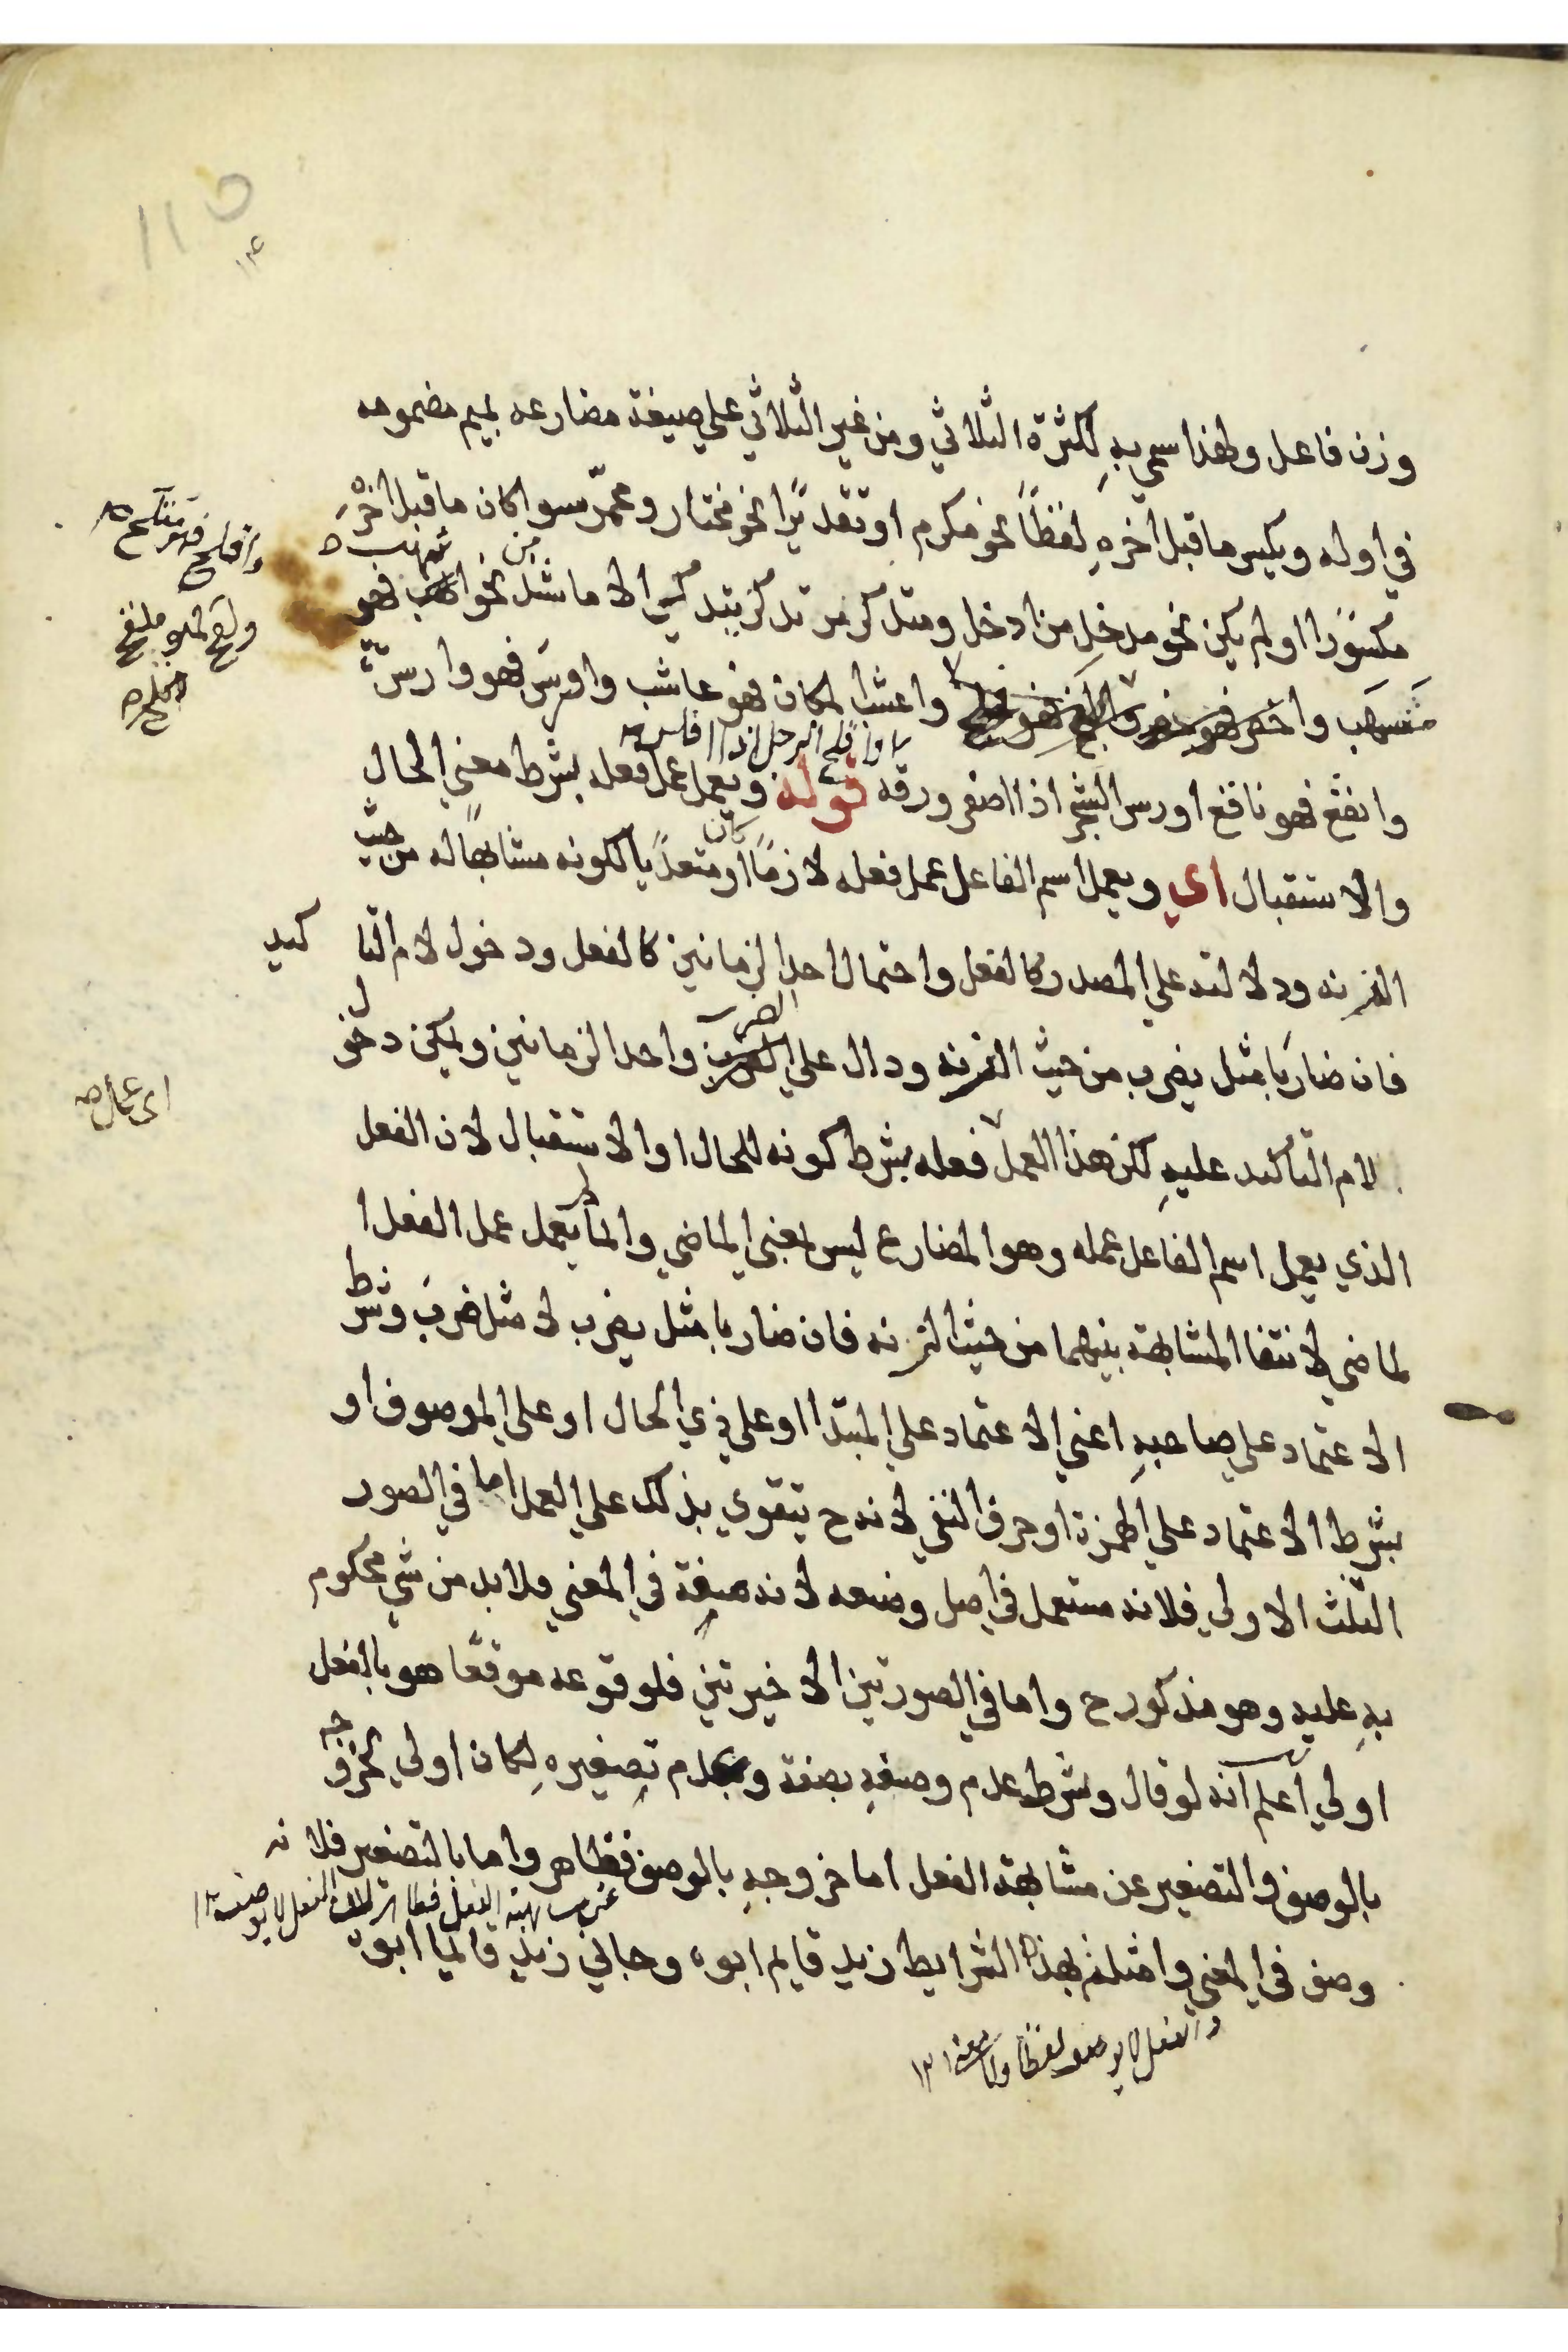 110
وزن فاعل ولهذا سمي به لكثرة الثلاثي ومن غير الثلاثي علي صيغة مضارعه بميم مضمومه
في اوله ويكسر ما قبل اخرهِ لفظاً نحو مكرم او تقديرًا نحو مختار ومحمرّ سوا كان ما قبل اخرهِ
مكسورًا او لم يكن نحو مدخل من ادخل ومتذكر من تذكر يتذكر الا ما شذّ من نحو اسهب فهو
مَسهَب واعشب المكان فهو عاشب واورسَ فهو وارس
وانفع فهو نافع اورس الشجر اذا اصفر ورقه قوله ويعمل عمل فعله بشرط معني الحال
والاستقبال اي ويعمل اسم الفاعل عمل فعله لازمًا كان او متعديًا لكونه مشابهًا له من حيث
الزنه ودلالته علي المصدر كالفعل واحتمال احد الزمانين كالفعل ودخول لام التاكيد
فان ضاربًا مثل يضرب من حيث الزنه ودال علي الضرب واحد الزمانين ويمكن دخول
لام التأكيد عليهِ لكن هذا العمل فعله بشرط كونه للحال او الاستقبال لان الفعل
الذي يعمل اسم الفاعل عمله وهو المضارع ليس بمعني الماضي وانما لم يعمل عمل الفعل ا
لماضي لانتفا المشابهة بينهما من حيث الزنه فان ضاربا مثل يضرب لا مثل ضربَ وشرط
الاعتماد علي صاحبهِ اعني الاعتماد علي المبتدا او علي ذي الحال او علي الموصوف او
بشرط الاعتماد علي الهمزة او حرف النفي لانه ح يتقوي بذلك علي العمل اما في الصور
الثلث الاولي فلانه مستعمل في اصل وضعه لانه صفة في المعني فلا بد من شي محكوم
بهِ عليه وهو مذكور ح واما في الصورتين الاخيرتين فلوقوعه موقعًا هو بالفعل
اولي اعلم انه لو قال وشرط عدم وصفهِ بصفة وعدم تصغيرهِ لكان اولي لخروجه
بالوصف والتصغير عن مشابهة الفعل اما خروجه بالوصف فظاهر واما بالتصغير فلانه
وصف في المعني وامثلة بهذه الشرايط زيد قايم ابوه وجاني زيد قايما ابوه
والفعل لا يوصف لفظا ولا معني ١٣